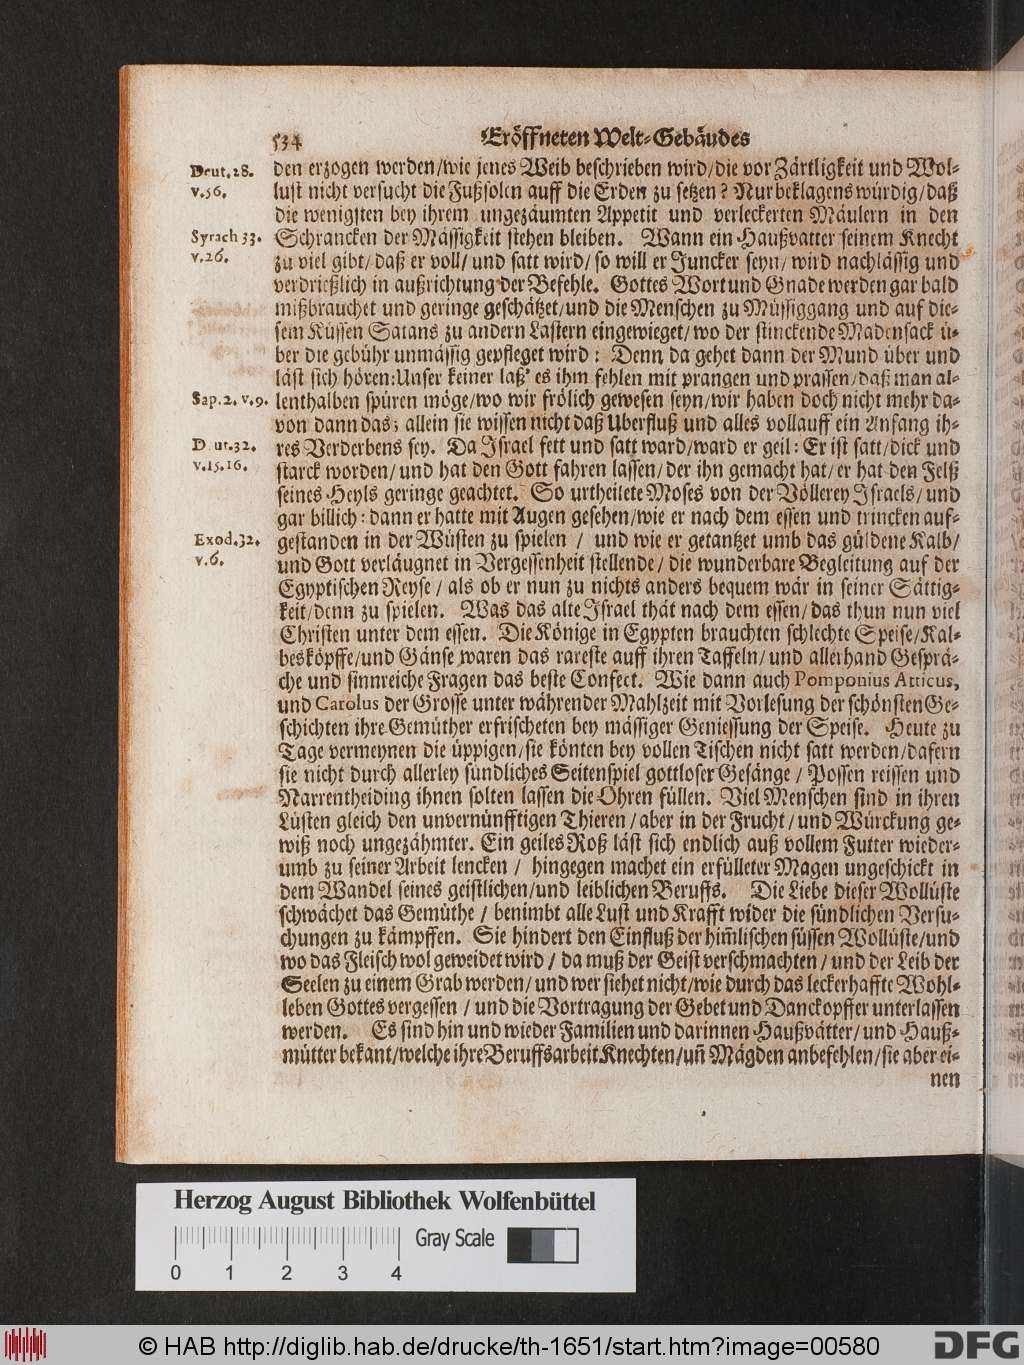 534 Eröffneten Welt-Gebäudes
Deut. 28.
v. 56.
Syrach 33.
v. 26.
Sap. 2. v. 9.
D ut. 32.
v. 15. 16.
Exod. 32.
v. 6.
den erzogen werden/wie jenes Weib beschrieben wird/die vor Zärtligkeit und Wol-
lust nicht versucht die Fußsolen auff die Erden zu setzen? Nur beklagens würdig/daß
die wenigsten bey ihrem ungezäumten Appetit und verleckerten Mäulern in den
Schrancken der Mässigkeit stehen bleiben. Wann ein Haußvatter seinem Knecht
zu viel gibt/daß er voll/und satt wird/so will er Juncker seyn/wird nachlässig und
verdrießlich in außrichtung der Befehle. Gottes Wort und Gnade werden gar bald
mißbrauchet und geringe geschätzet/und die Menschen zu Müssiggang und auf die-
sem Küssen Satans zu andern Lastern eingewieget/wo der stinckende Madensack ü-
ber die gebühr unmässig gepfleget wird: Denn da gehet dann der Mund über und
läst sich hören: Unser keiner laß' es ihm fehlen mit prangen und prassen/daß man al-
lenthalben spüren möge/wo wir frölich gewesen seyn/wir haben doch nicht mehr da-
von dann das; allein sie wissen nicht daß Uberfluß und alles vollauff ein Anfang ih-
res Verderbens sey. Da Israel fett und satt ward/ward er geil: Er ist satt/dick und
starck worden/und hat den Gott fahren lassen/der ihn gemacht hat/er hat den Felß
seines Heyls geringe geachtet. So urtheilete Moses von der Völlerey Israels/und
gar billich: dann er hatte mit Augen gesehen/wie er nach dem essen und trincken auf-
gestanden in der Wüsten zu spielen / und wie er getantzet umb das güldene Kalb/
und Gott verläugnet in Vergessenheit stellende/die wunderbare Begleitung auf der
Egyptischen Reyse/als ob er nun zu nichts anders bequem wär in seiner Sättig-
keit/denn zu spielen. Was das alte Israel thät nach dem essen/das thun nun viel
Christen unter dem essen. Die Könige in Egypten brauchten schlechte Speise/Kal-
besköpffe/und Gänse waren das rareste auff ihren Taffeln/und allerhand Gesprä-
che und sinnreiche Fragen das beste Confect. Wie dann auch Pomponius Atticus,
und Carolus der Grosse unter währender Mahlzeit mit Vorlesung der schönsten Ge-
schichten ihre Gemüther erfrischeten bey mässiger Geniessung der Speise. Heute zu
Tage vermeynen die üppigen/sie könten bey vollen Tischen nicht satt werden/dafern
sie nicht durch allerley sündliches Seitenspiel gottloser Gesänge / Possen reissen und
Narrentheiding ihnen solten lassen die Ohren füllen. Viel Menschen sind in ihren
Lüsten gleich den unvernünfftigen Thieren/aber in der Frucht/und Würckung ge-
wiß noch ungezähmter. Ein geiles Roß läst sich endlich auß vollem Futter wieder-
umb zu seiner Arbeit lencken / hingegen machet ein erfülleter Magen ungeschickt in
dem Wandel seines geistlichen/und leiblichen Beruffs. Die Liebe dieser Wollüste
schwächet das Gemüthe / benimbt alle Lust und Krafft wider die sündlichen Versu-
chungen zu kämpffen. Sie hindert den Einfluß der him̃lischen süssen Wollüste/und
wo das Fleisch wol geweidet wird / da muß der Geist verschmachten / und der Leib der
Seelen zu einem Grab werden/und wer siehet nicht/wie durch das leckerhaffte Wohl-
leben Gottes vergessen / und die Vortragung der Gebet und Danckopffer unterlassen
werden. Es sind hin und wieder Familien und darinnen Haußvätter/und Hauß-
mütter bekant/welche ihre Beruffsarbeit Knechten/uñ Mägden anbefehlen/sie aber ei-
nen
Herzog August Bibliothek Wolfenbüttel
Gray Scale
0 1 2 3 4
© HAB http://diglib.hab.de/drucke/th-1651/start.htm?image=00580
DFG